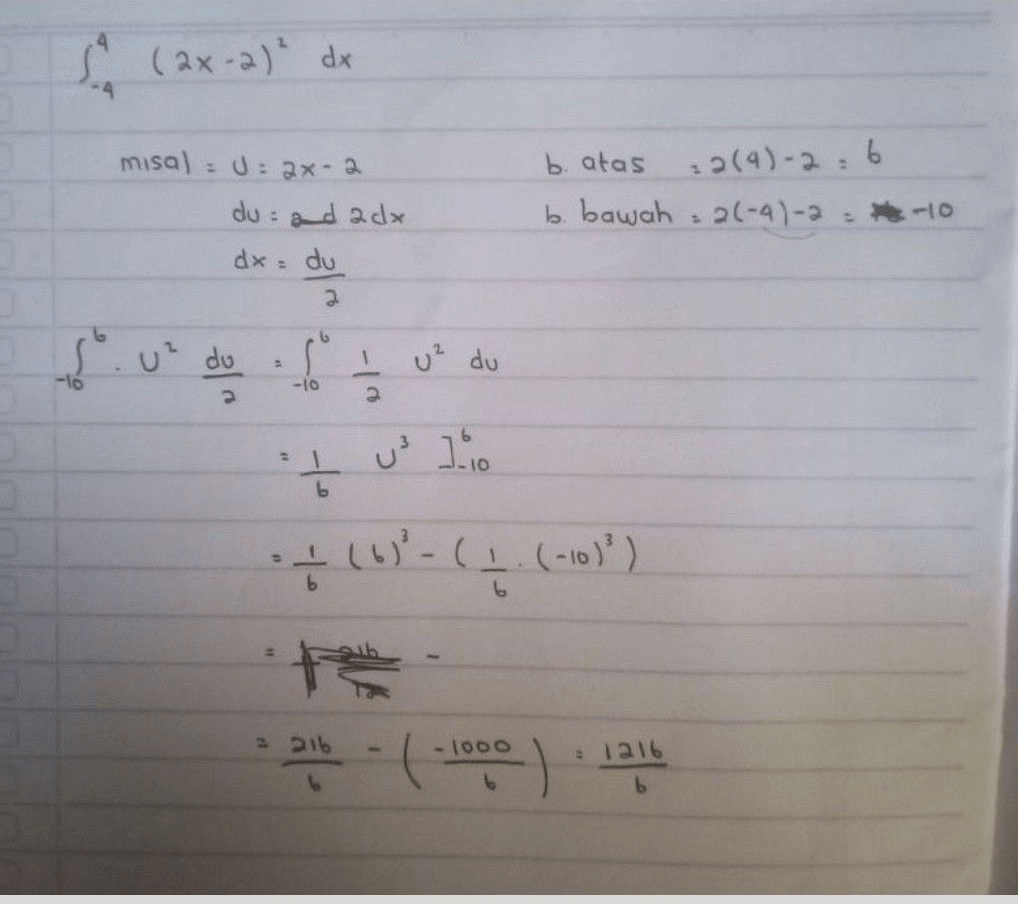 ∫₋₄⁴ (2x-2)² dx
misal = U = 2x - 2 b. atas = 2(4) - 2 = 6
du = 2dx b. bawah = 2(-4) - 2 = -10
dx = du/2
∫₋₁₀⁶ . U² du/2 = ∫₋₁₀⁶ 1/2 U² du
= 1/6 U³ ]₋₁₀⁶
= 1/6 (6)³ - (1/6 . (-10)³)
= -
= 216/6 - (-1000/6) = 1216/6